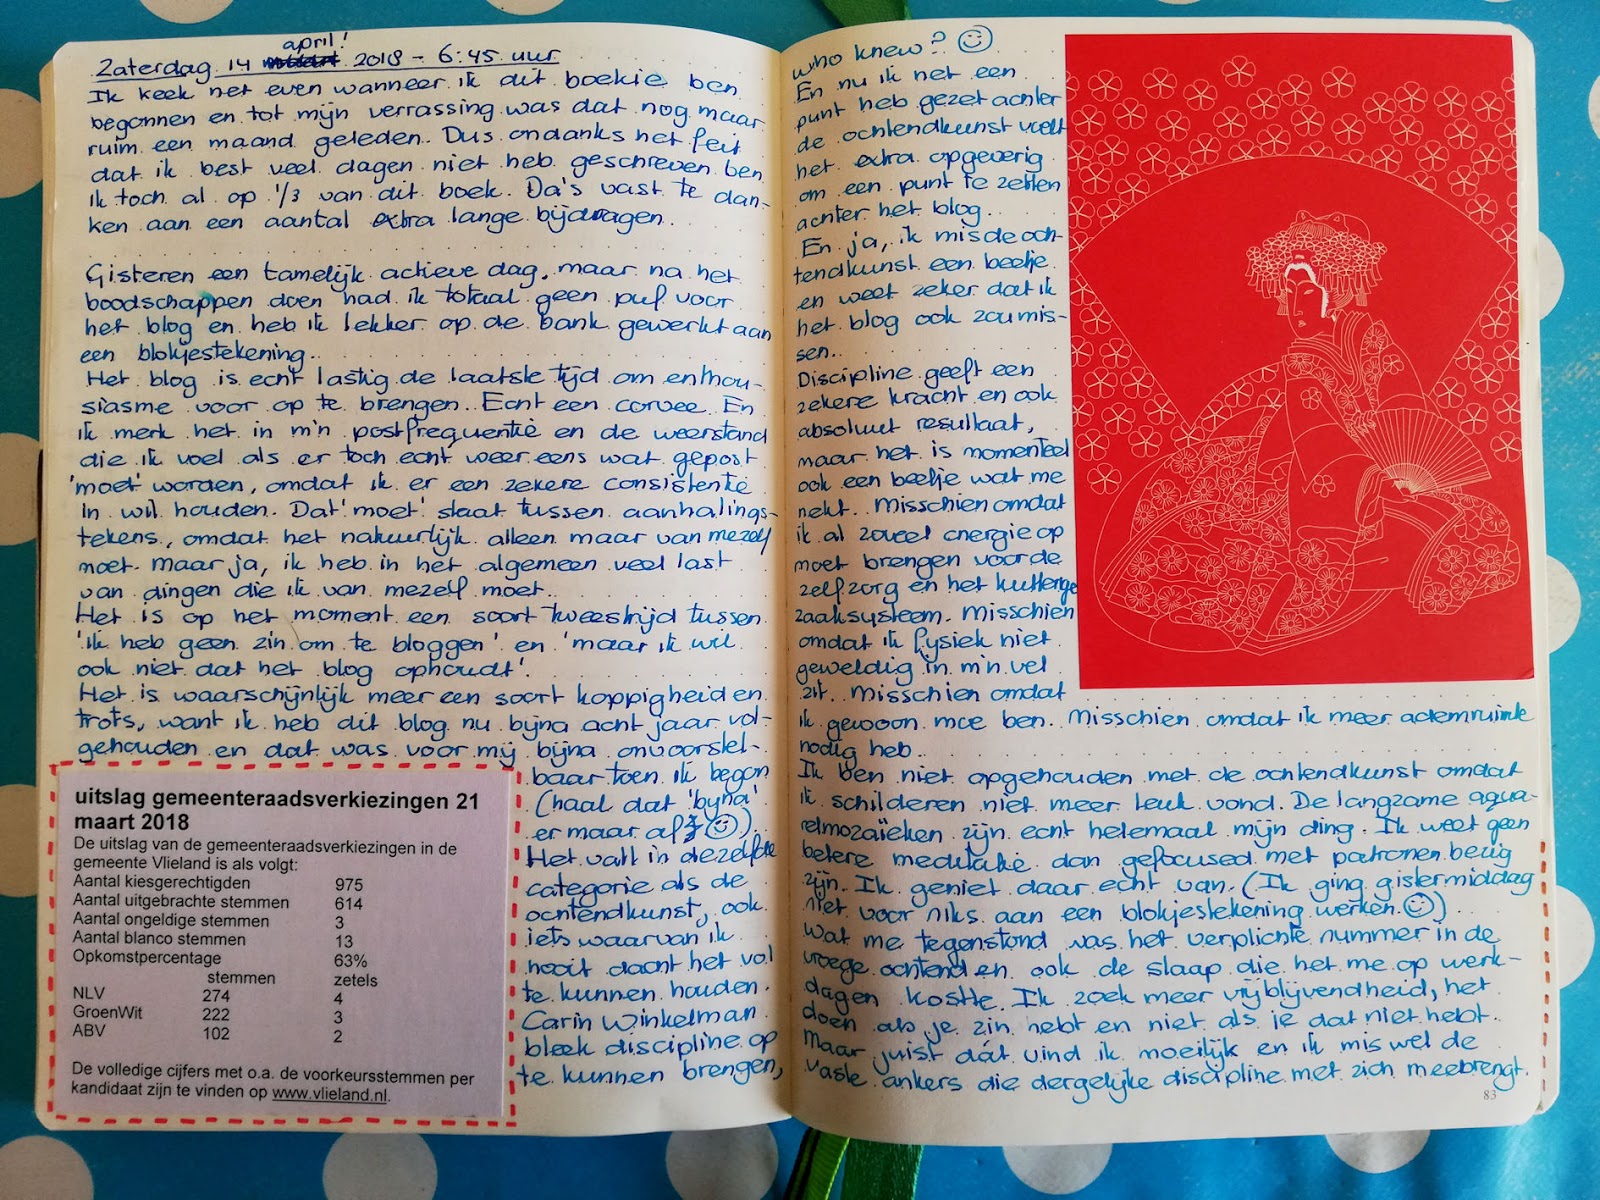 april!
Zaterdag 14 maart 2018 - 6:45 uur
Ik keek net even wanneer ik dit boekie ben
begonnen en tot mijn verrassing was dat nog maar
ruim een maand geleden. Dus ondanks het feit
dat ik best veel dagen niet heb geschreven ben
ik toch al op 1/3 van dit boek. Da's vast te dan-
ken aan een aantal extra lange bijdragen.
Gisteren een tamelijk actieve dag, maar na het
boodschappen doen had ik totaal geen puf voor
het blog en heb ik lekker op de bank gewerkt aan
een blokjestekening..
Het blog is echt lastig de laatste tijd om enthou-
siasme voor op te brengen. Echt een corvee. En
ik merk het in m'n postfrequentie en de weerstand
die ik voel als er toch echt weer eens wat gepost
'moet' worden, omdat ik er een zekere consistentie
in wil houden. Dat 'moet' staat tussen aanhalings-
tekens, omdat het natuurlijk alleen maar van mezelf
moet. Maar ja, ik heb in het algemeen veel last
van dingen die ik van mezelf moet..
Het is op het moment een soort tweestrijd tussen
'ik heb geen zin om te bloggen' en 'maar ik wil
ook niet dat het blog ophoudt'.
Het is waarschijnlijk meer een soort koppigheid en
trots, want ik heb dit blog nu bijna acht jaar vol-
gehouden en dat was voor mij bijna onvoorstel-
baar toen ik begon
(haal dat 'bijna'
er maar af ☺).
Het valt in dezelfde
categorie als de
ochtendkunst, ook
iets waarvan ik
nooit dacht het vol
te kunnen houden.
Carin Winkelman
bleek discipline op
te kunnen brengen,
uitslag gemeenteraadsverkiezingen 21
maart 2018
De uitslag van de gemeenteraadsverkiezingen in de
gemeente Vlieland is als volgt:
Aantal kiesgerechtigden 975
Aantal uitgebrachte stemmen 614
Aantal ongeldige stemmen 3
Aantal blanco stemmen 13
Opkomstpercentage 63%
stemmen zetels
NLV 274 4
GroenWit 222 3
ABV 102 2
De volledige cijfers met o.a. de voorkeursstemmen per
kandidaat zijn te vinden op www.vlieland.nl.
who knew? ☺
En nu ik net een
punt heb gezet achter
de ochtendkunst voelt
het extra opgeverig
om een punt te zetten
achter het blog.
En ja, ik mis de och-
tendkunst een beetje
en weet zeker dat ik
het blog ook zou mis-
sen..
Discipline geeft een
zekere kracht en ook
absoluut resultaat,
maar het is momenteel
ook een beetje wat me
nekt. Misschien omdat
ik al zoveel energie op
moet brengen voor de
zelfzorg en het kuttenge
zaaksysteem. Misschien
omdat ik fysiek niet
geweldig in m'n vel
zit. Misschien omdat
ik gewoon moe ben. Misschien omdat ik meer ademruimte
nodig heb.
Ik ben niet opgehouden met de ochtendkunst omdat
ik schilderen niet meer leuk vond. De langzame aqua-
relmozaïeken zijn echt helemaal mijn ding. Ik weet geen
betere meditatie dan gefocused met patronen bezig
zijn. Ik geniet daar echt van. (Ik ging gistermiddag
niet voor niks aan een blokjestekening werken ☺)
Wat me tegenstond was het verplichte nummer in de
vroege ochtend en ook de slaap die het me op werk-
dagen kostte. Ik zoek meer vrijblijvendheid, het
doen als je zin hebt en niet als je dat niet hebt.
Maar juist dát vind ik moeilijk en ik mis wel de
vaste ankers die dergelijke discipline met zich meebrengt.
83